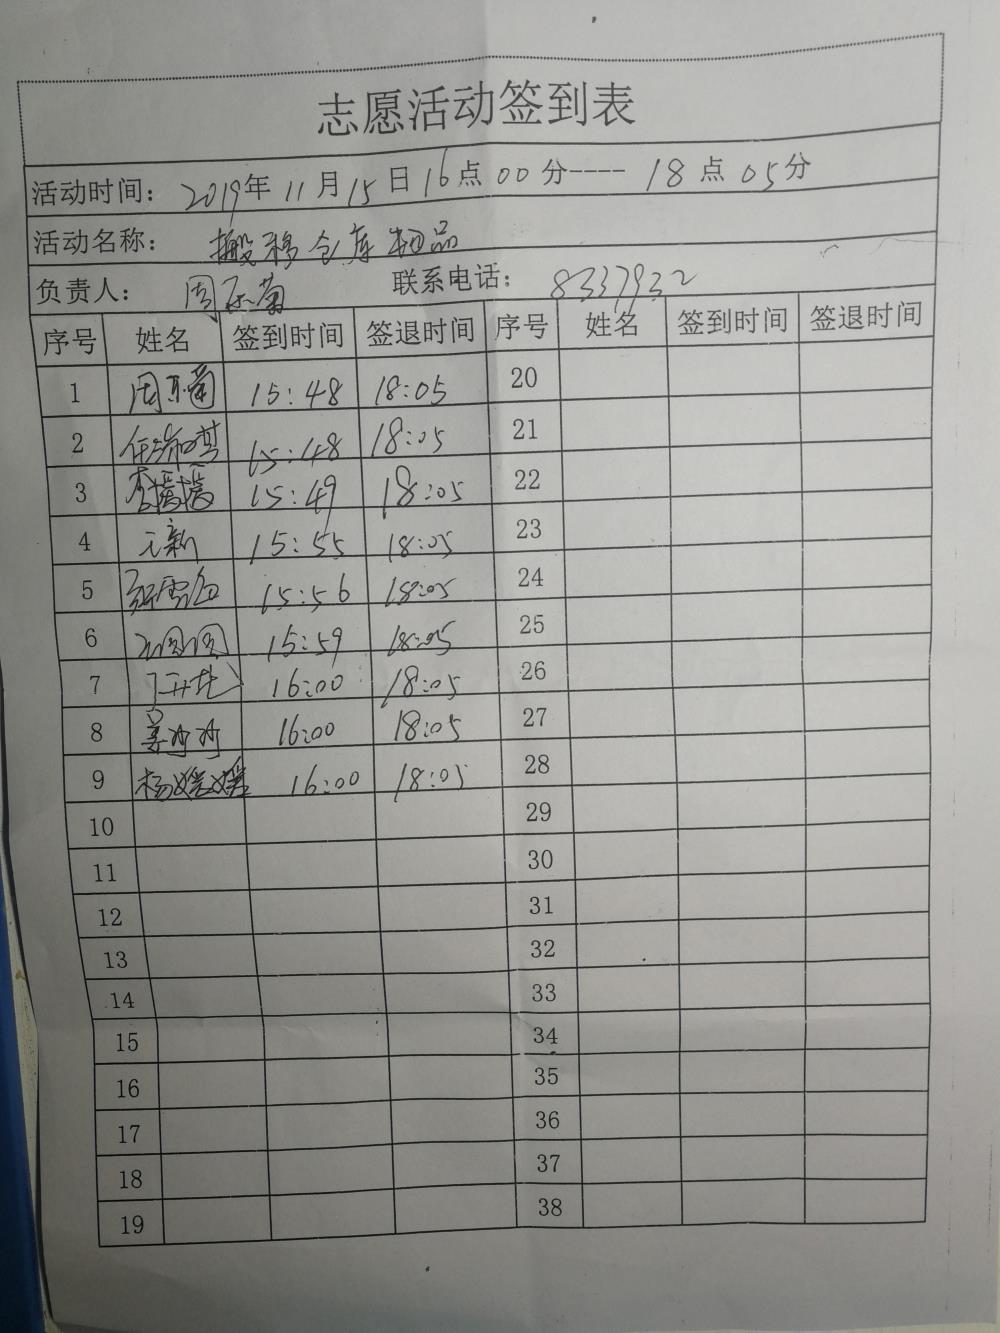 志愿活动签到表
活动时间： 2019年 11月 15日 16点 00分---- 18点 05分
活动名称： 搬移仓库物品
负责人： 周 联系电话： 8337932
序号 姓名 签到时间 签退时间 序号 姓名 签到时间 签退时间
1 周 15:48 18:05 20
2 任 15:48 18:05 21
3 李媛媛 15:49 18:05 22
4 新 15:55 18:05 23
5 15:56 18:05 24
6 圆圆 15:59 18:05 25
7 16:00 18:05 26
8 姜沙沙 16:00 18:05 27
9 杨媛媛 16:00 18:05 28
10 29
11 30
12 31
13 32
14 33
15 34
16 35
17 36
18 37
19 38